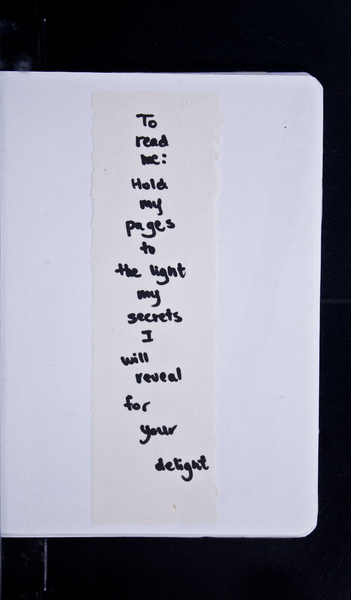 To
read
me:
Hold
my
pages
to
the light
my
secrets
I
will
reveal
for
your
delight